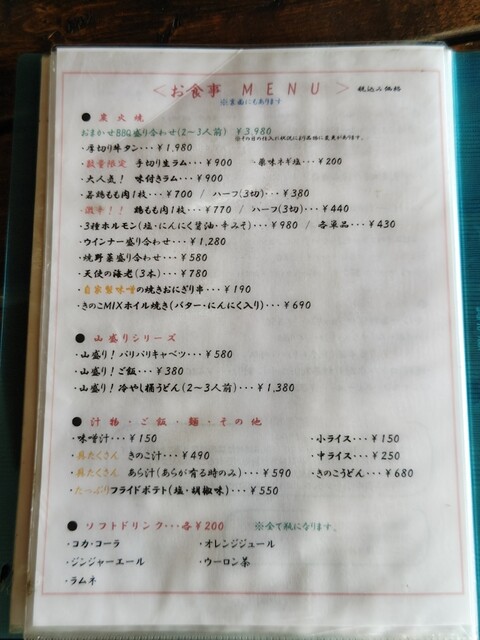 <お食事 MENU> 税込み価格
※裏面にもあります
● 炭火焼
おまかせBBQ盛り合わせ(2~3人前) ¥3,980
※その日の仕入れ状況により品物に変更があります。
・厚切り牛タン・・・¥1,980
・数量限定 手切り生ラム・・・¥900 ・薬味ネギ塩・・・¥200
・大人気! 味付きラム・・・¥900
・若鶏もも肉1枚・・・¥700 / ハーフ(3切)・・・¥380
・激辛!! 鶏もも肉1枚・・・¥770 / ハーフ(3切)・・・¥440
・3種ホルモン(塩・にんにく醤油・辛みそ)・・・¥980 / 各単品・・・¥430
・ウインナー盛り合わせ・・・¥1,280
・焼野菜盛り合わせ・・・¥580
・天使の海老(3本)・・・¥780
・自家製味噌の焼きおにぎり串・・・¥190
・きのこMIXホイル焼き(バター・にんにく入り)・・・¥690
● 山盛りシリーズ
・山盛り! パリパリキャベツ・・・¥580
・山盛り! ご飯・・・¥380
・山盛り! 冷やし桶うどん(2~3人前)・・・¥1,380
● 汁物・ご飯・麺・その他
・味噌汁・・・¥150 ・小ライス・・・¥150
・具たくさん きのこ汁・・・¥490 ・中ライス・・・¥250
・具たくさん あら汁(あらが有る時のみ)・・・¥590 ・きのこうどん・・・¥680
・たっぷりフライドポテト(塩・胡椒味)・・・¥550
● ソフトドリンク・・・各¥200 ※全て瓶になります。
・コカ・コーラ ・オレンジジュール
・ジンジャーエール ・ウーロン茶
・ラムネ